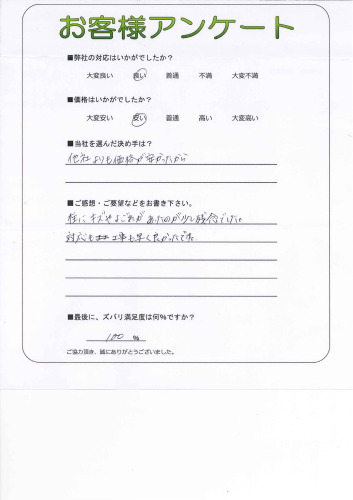 お客様アンケート
■弊社の対応はいかがでしたか?
大変良い 良い 普通 不満 大変不満
■価格はいかがでしたか?
大変安い 安い 普通 高い 大変高い
■当社を選んだ決め手は?
他社よりも価格が安かったから
■ご感想・ご要望などをお書き下さい。
柱にキズやよごれがあったのが少し残念でした。
対応も工事も早く良かったです。
■最後に、ズバリ満足度は何%ですか?
100 %
ご協力頂き、誠にありがとうございました。